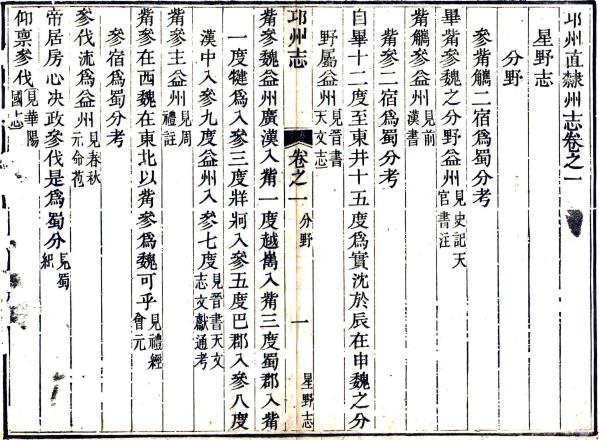 邛州直隸州志卷之一
星野志
分野
參觜觽二宿爲蜀分考
畢觜參魏之分野益州見史記天官書注
觜觽參益州見前漢書
觜參二宿爲蜀分考
自畢十二度至東井十五度爲實沈於辰在申魏之分
野屬益州見晉書天文志
邛州志
卷之一
分野
一
星野志
觜參魏益州廣漢入觜一度越嶲入觜三度蜀郡入觜
一度犍爲入參三度牂牁入參五度巴郡入參八度
漢中入參九度益州入參七度見晉書天文志文獻通考
觜參主益州見周禮註
觜參在西魏在東北以觜參爲魏可乎見禮經會元
參宿爲蜀分考
參伐流爲益州見春秋元命苞
帝居房心决政參伐是爲蜀分見蜀紀
仰禀參伐見華陽國志